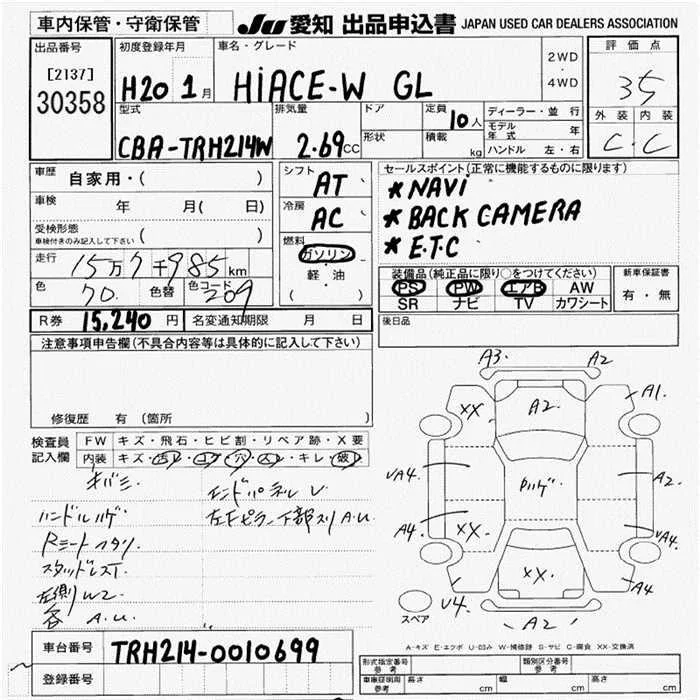 車内保管・守衛保管
JU 愛知 出品申込書 JAPAN USED CAR DEALERS ASSOCIATION
出品番号
[2137]
30358
初度登録年月
H20 1月
車名・グレード
HiACE-W GL
2WD
・
4WD
評価点
35
外装 内装
C. C
型式
CBA-TRH214W
排気量
2.69CC
ドア
形状
定員 10人
積載 kg
ディーラー・並行
モデル年式 年
ハンドル 左・右
車歴 自家用・( )
車検 年 月( 日)
受検形態
車検付きのみ記入して下さい ( )
走行 15万7千985km
色 70. 色替 色コード 209
シフト AT
冷房 AC
燃料
ガソリン
軽・油
( )
セールスポイント(正常に機能するものに限ります)
*NAVi
*BACK CAMERA
*E.T.C
装備品(純正品に限り○をつけてください)
PS PW エアB AW
SR ナビ TV カワシート
新車保証書
有・無
R券 15,240円 名変通知期限 月 日
後日品
注意事項申告欄(不具合内容等は具体的に記入して下さい)
修復歴 有 (箇所 )
検査員記入欄
FW キズ・飛石・ヒビ割・リペア跡・X要
内装 キズ・汚レ・コゲ・穴・スレ・キレ・破レ
キバミ.
ハンドルハゲ.
スタッドレスT.
左側W2
各 A.U.
インドパネルU
左Fピラー下部スリA.U
A3. A2
XX A2. A1.
VA4. A2.
A4. XX VA4.
XX A4
V4.
A2
スペア
A-キズ E-エクボ U-凹み W-補修跡 S-サビ C-腐食 XX-交換済
車台番号 TRH214-0010699
登録番号
形式指定番号 参考
類別区分番号 参考
車庫証明用 参考 長さ cm 幅 cm 高さ cm